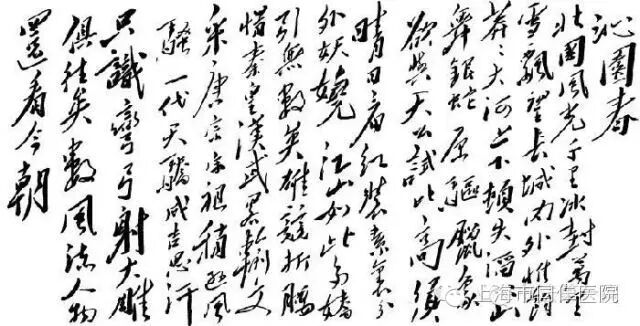 沁園春
北國風光千里冰封萬里
雪飄望長城內外惟餘
莽〻大河上下頓失滔〻山
舞銀蛇原驅臘象
欲與天公試比高須
晴日看紅裝素裹分
外妖嬈江山如此多嬌
引無數英雄競折腰
惜秦皇漢武略輸文
采唐宗宋祖稍遜風
騷一代天驕成吉思汗
只識彎弓射大雕
俱往矣數風流人物
還看今朝
上海市同医院